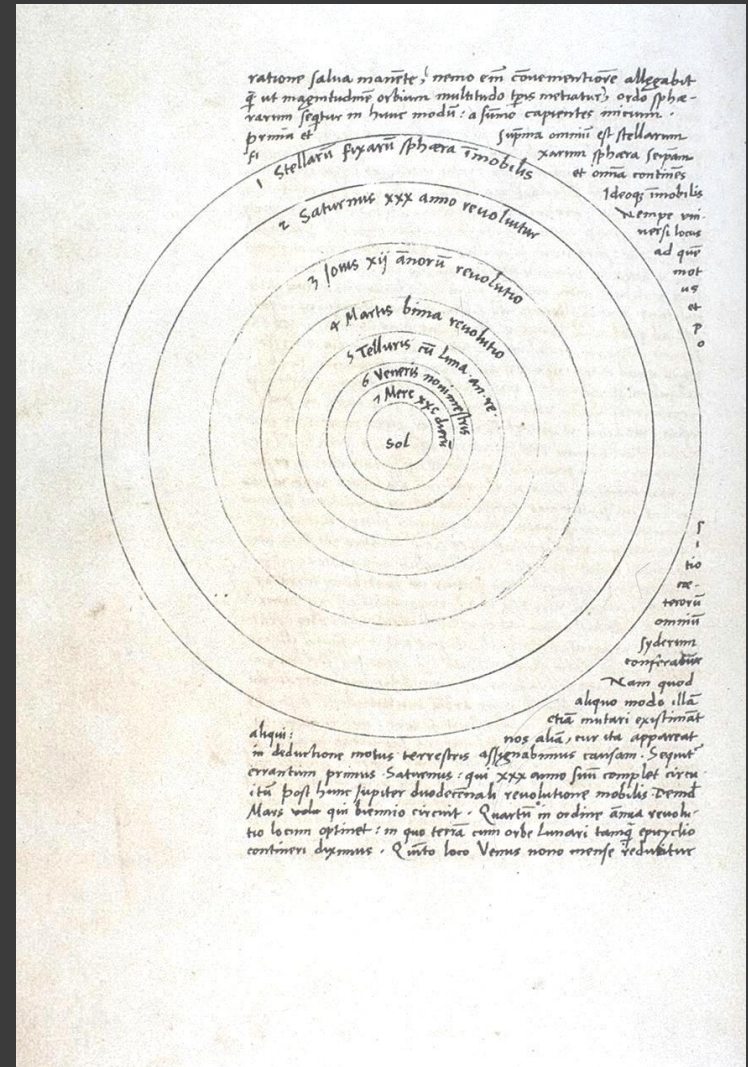 ratione salva manẽte, nemo em̃ cõvenientiorẽ allegabit
q̃ ut magnitudinẽ orbium multitudo tp̃is metiatur, ordo sphæ-
rarum seq̃tur in hunc modũ: a sũmo capientes initium.
prima et sup̃ma omniũ est stellarum
fi xarum sphæra seipam̃
et omnia continẽs
Ideoqꝫ ĩmobilis
Nempe uni-
versi locus
ad quẽ
mot
us
et
p
o
1 Stellarũ fixarũ sphæra ĩmobilis
2 Saturnus xxx anno revolvitur
3 Jovis xij ãnorũ revolutio
4 Martis bima revolutio
5 Telluris cũ Luna an. re.
6 Veneris nonimestris
7 Merc xxc dierũ
Sol
s
i
tio
cæ-
terorũ
omniũ
syderum
conferatur
Nam quod
aliquo modo illã
etiã mutari existimãt
aliqui: nos aliã, cur ita appareat
in deductione motus terrestris assignabimus causam. Sequit̃
errantium primus Saturnus: qui xxx anno suũ complet circu
itũ post hunc Jupiter duodecẽnali revolutione mobilis Demd̃
Mars qui biennio circuit. Quartũ in ordine ãnua revolu-
tio locum optinet: in quo terrã cum orbe Lunari tamq̃ epicyclio
contineri diximus. Quinto loco Venus nono mense reducitur